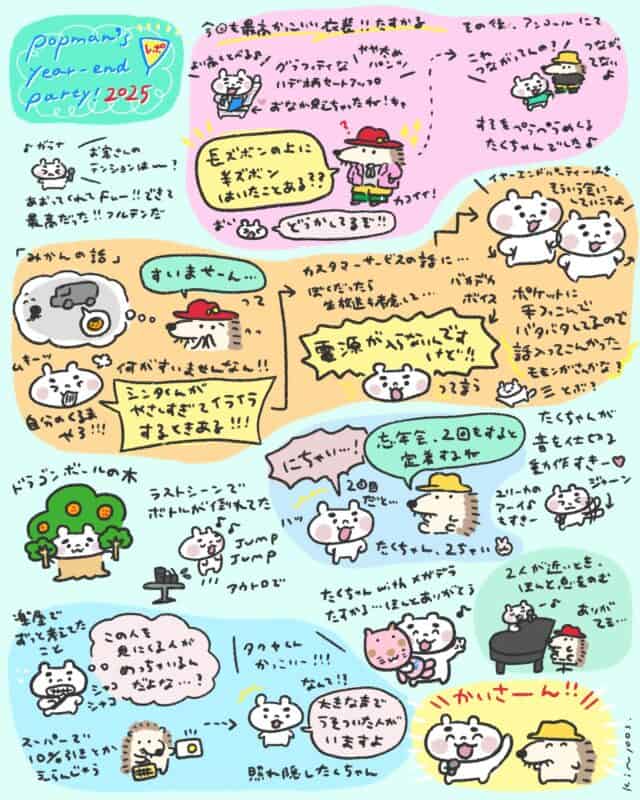 popman's
year-end
party! 2025
レポ
今回も最高かっこいい衣装!! たすかる
グラフィティな
ハデ柄セットアップ
やや太め
パンツ
おなか見えちゃだめ!キャ
長ズボンの上に
半ズボン
はいたことある??
カコイイ!
おい
どうかしてるぞ!!
その後、アンコールにて
これ
つながってんの?
つながっ
てないよ
すそをペラペラめくる
たくちゃんでしたよ
お客さんの
テンションは〜?
あおってくれてドレー!!できて
最高だった!! フルテンだ
「みかんの話」
すいませーん…
って
ムキーッ
何がすいませんなん!!
自分のくるま
やろ!!!
シンタくんが
やさしすぎてイライラ
するときある!!!
カスタマーサービスの話に…
ぼくだったら
生放送も考慮して…
バカデカ
ボイス
電源が入らないんです
けど!!
って言う
イヤーエンドパーティーはも
もういう会に
していこうよ
ポケットに
手つっこんで
バタバタしてるので
話入ってこんかった
モモンガさんかな?
トぶ?
ドラゴンボールの木
ラストシーンで
ボトルが倒れてた
JUMP
JUMP
アウトロで
にちゃい…!
2回目
だと…
ハッ
忘年会、2回もすると
定着するね
たくちゃん、2ちゃい
たくちゃんが
音を仕切る
動作すきー
ユリーカの
アーイ♪
もすきー
ジャーン
楽屋で
ずっと考えてた
こと
この人を
見にくる人が
めっちゃいるん
だよな…?
シャコ
シャコ
スーパーで
10%引きとか
えらんじゃう
タクヤくん
かっこいー!!!
なんて!!
大きな声で
うそついた人が
いますよ
照れ隠したくちゃん
たくちゃん with メガデラ
たすかる…ほんとありがとう
2人が近いとき、
ほんと息をのむ
ありが
てえ…
かいさーん!!